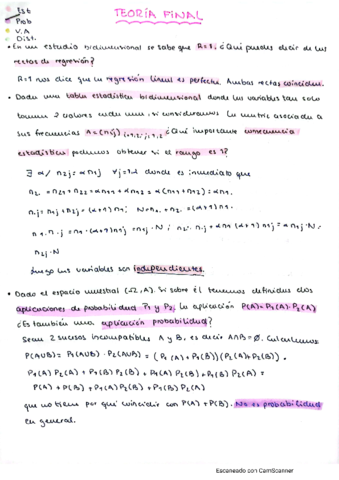 Est
Prob
V.A
Dist.
TEORÍA FINAL
• En un estudio bidimensional se sabe que R=1. ¿Qué puedes decir de las
rectas de regresión?
R=1 nos dice que la regresión lineal es perfecta. Ambas rectas coinciden.
• Dada una tabla estadística bidimensional donde las variables tan solo
toman 2 valores cada una, si consideramos la matriz asociada a
sus frecuencias n=(nij) i=1,2; j=1,2 ¿Qué importante consecuencia
estadística podemos obtener si el rango es 1?
∃ α / n2j = α n1j ∀j=1,2 donde es inmediato que
n2. = n21+n22 = αn11+αn12 = α(n11+n12) = αn1.
n.j = n1j+n2j = (α+1)n1j N=n1.+n2. = (α+1)n1.
n1.n.j = n1.(α+1)n1j = n1j·N ; n2.n.j = αn1.(α+1)n1j = αn1j·N =
n2j·N
Luego las variables son independientes.
• Dado el espacio muestral (Ω,A). Si sobre él tenemos definidas dos
aplicaciones de probabilidad P1 y P2, la aplicación P(A)=P1(A)·P2(A)
¿Es también una aplicación probabilidad?
Sean 2 sucesos incompatibles A y B, es decir A∩B=∅. Calculamos
P(A∪B) = P1(A∪B)·P2(A∪B) = (P1(A)+P1(B))(P2(A)+P2(B)) =
P1(A)P2(A) + P1(B)P2(B) + P1(A)P2(B) + P1(B)P2(A) =
P(A) + P(B) + P1(A)P2(B) + P1(B)P2(A)
que no tiene por qué coincidir con P(A)+P(B). No es probabilidad
en general.
Escaneado con CamScanner